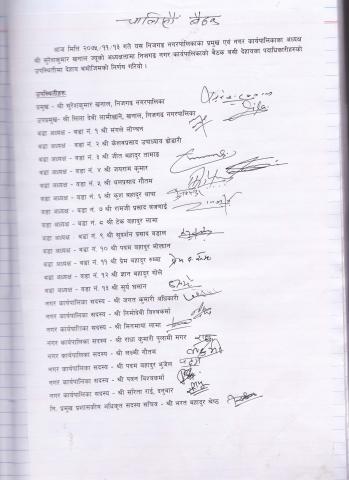 चालिसौं बैठक
आज मिति २०७५/११/१६ गते यस निजगढ नगरपालिकाका प्रमुख एवं नगर कार्यपालिकाका अध्यक्ष
श्री सुरेशकुमार खनाल ज्यूको अध्यक्षतामा निजगढ नगर कार्यपालिकाको बैठक बसी देहायका पदाधिकारीहरुको
उपस्थितिमा देहाय बमोजिमको निर्णय गरियो ।
उपस्थितीहरु
प्रमुख - श्री सुरेशकुमार खनाल, निजगढ नगरपालिका
उपप्रमुख- श्री शिला देवी लामीछाने, खनाल, निजगढ नगरपालिका
वडा अध्यक्ष - वडा नं. १ श्री मंगले मोक्तान
वडा अध्यक्ष - वडा नं. २ श्री केशवप्रसाद उपाध्याय
वडा अध्यक्ष - वडा नं. ३ श्री जीत बहादुर तामाङ
वडा अध्यक्ष - वडा नं. ४ श्री जयराम कुमार
वडा अध्यक्ष - वडा नं. ५ श्री यमप्रसाद गौतम
वडा अध्यक्ष - वडा नं. ६ श्री कुल बहादुर थापा
वडा अध्यक्ष - वडा नं. ७ श्री रामजी प्रसाद बजगाई
वडा अध्यक्ष - वडा नं. ८ श्री टेक बहादुर लामा
वडा अध्यक्ष - वडा नं. ९ श्री सुदर्शन प्रसाद
वडा अध्यक्ष - वडा नं. १० श्री पदम बहादुर मोक्तान
वडा अध्यक्ष - वडा नं. ११ श्री प्रेम बहादुर रुम्बा
वडा अध्यक्ष - वडा नं. १२ श्री ज्ञान बहादुर
वडा अध्यक्ष - वडा नं. १३ श्री सुर्य
नगर कार्यपालिका सदस्य - श्री जगत कुमारी अधिकारी
नगर कार्यपालिका सदस्य - श्री निर्मादेवी विश्वकर्मा
नगर कार्यपालिका सदस्य - श्री मिनमाया लामा
नगर कार्यपालिका सदस्य - श्री राधा कुमारी पुलामी मगर
नगर कार्यपालिका सदस्य - श्री लक्ष्मी गौतम
नगर कार्यपालिका सदस्य - श्री पदम बहादुर भुजेल
नगर कार्यपालिका सदस्य - श्री पवन विश्वकर्मा
नगर कार्यपालिका सदस्य - श्री सरिता राई, दनुवार
नि. प्रमुख प्रशासकीय अधिकृत सदस्य सचिव - श्री भरत बहादुर श्रेष्ठ